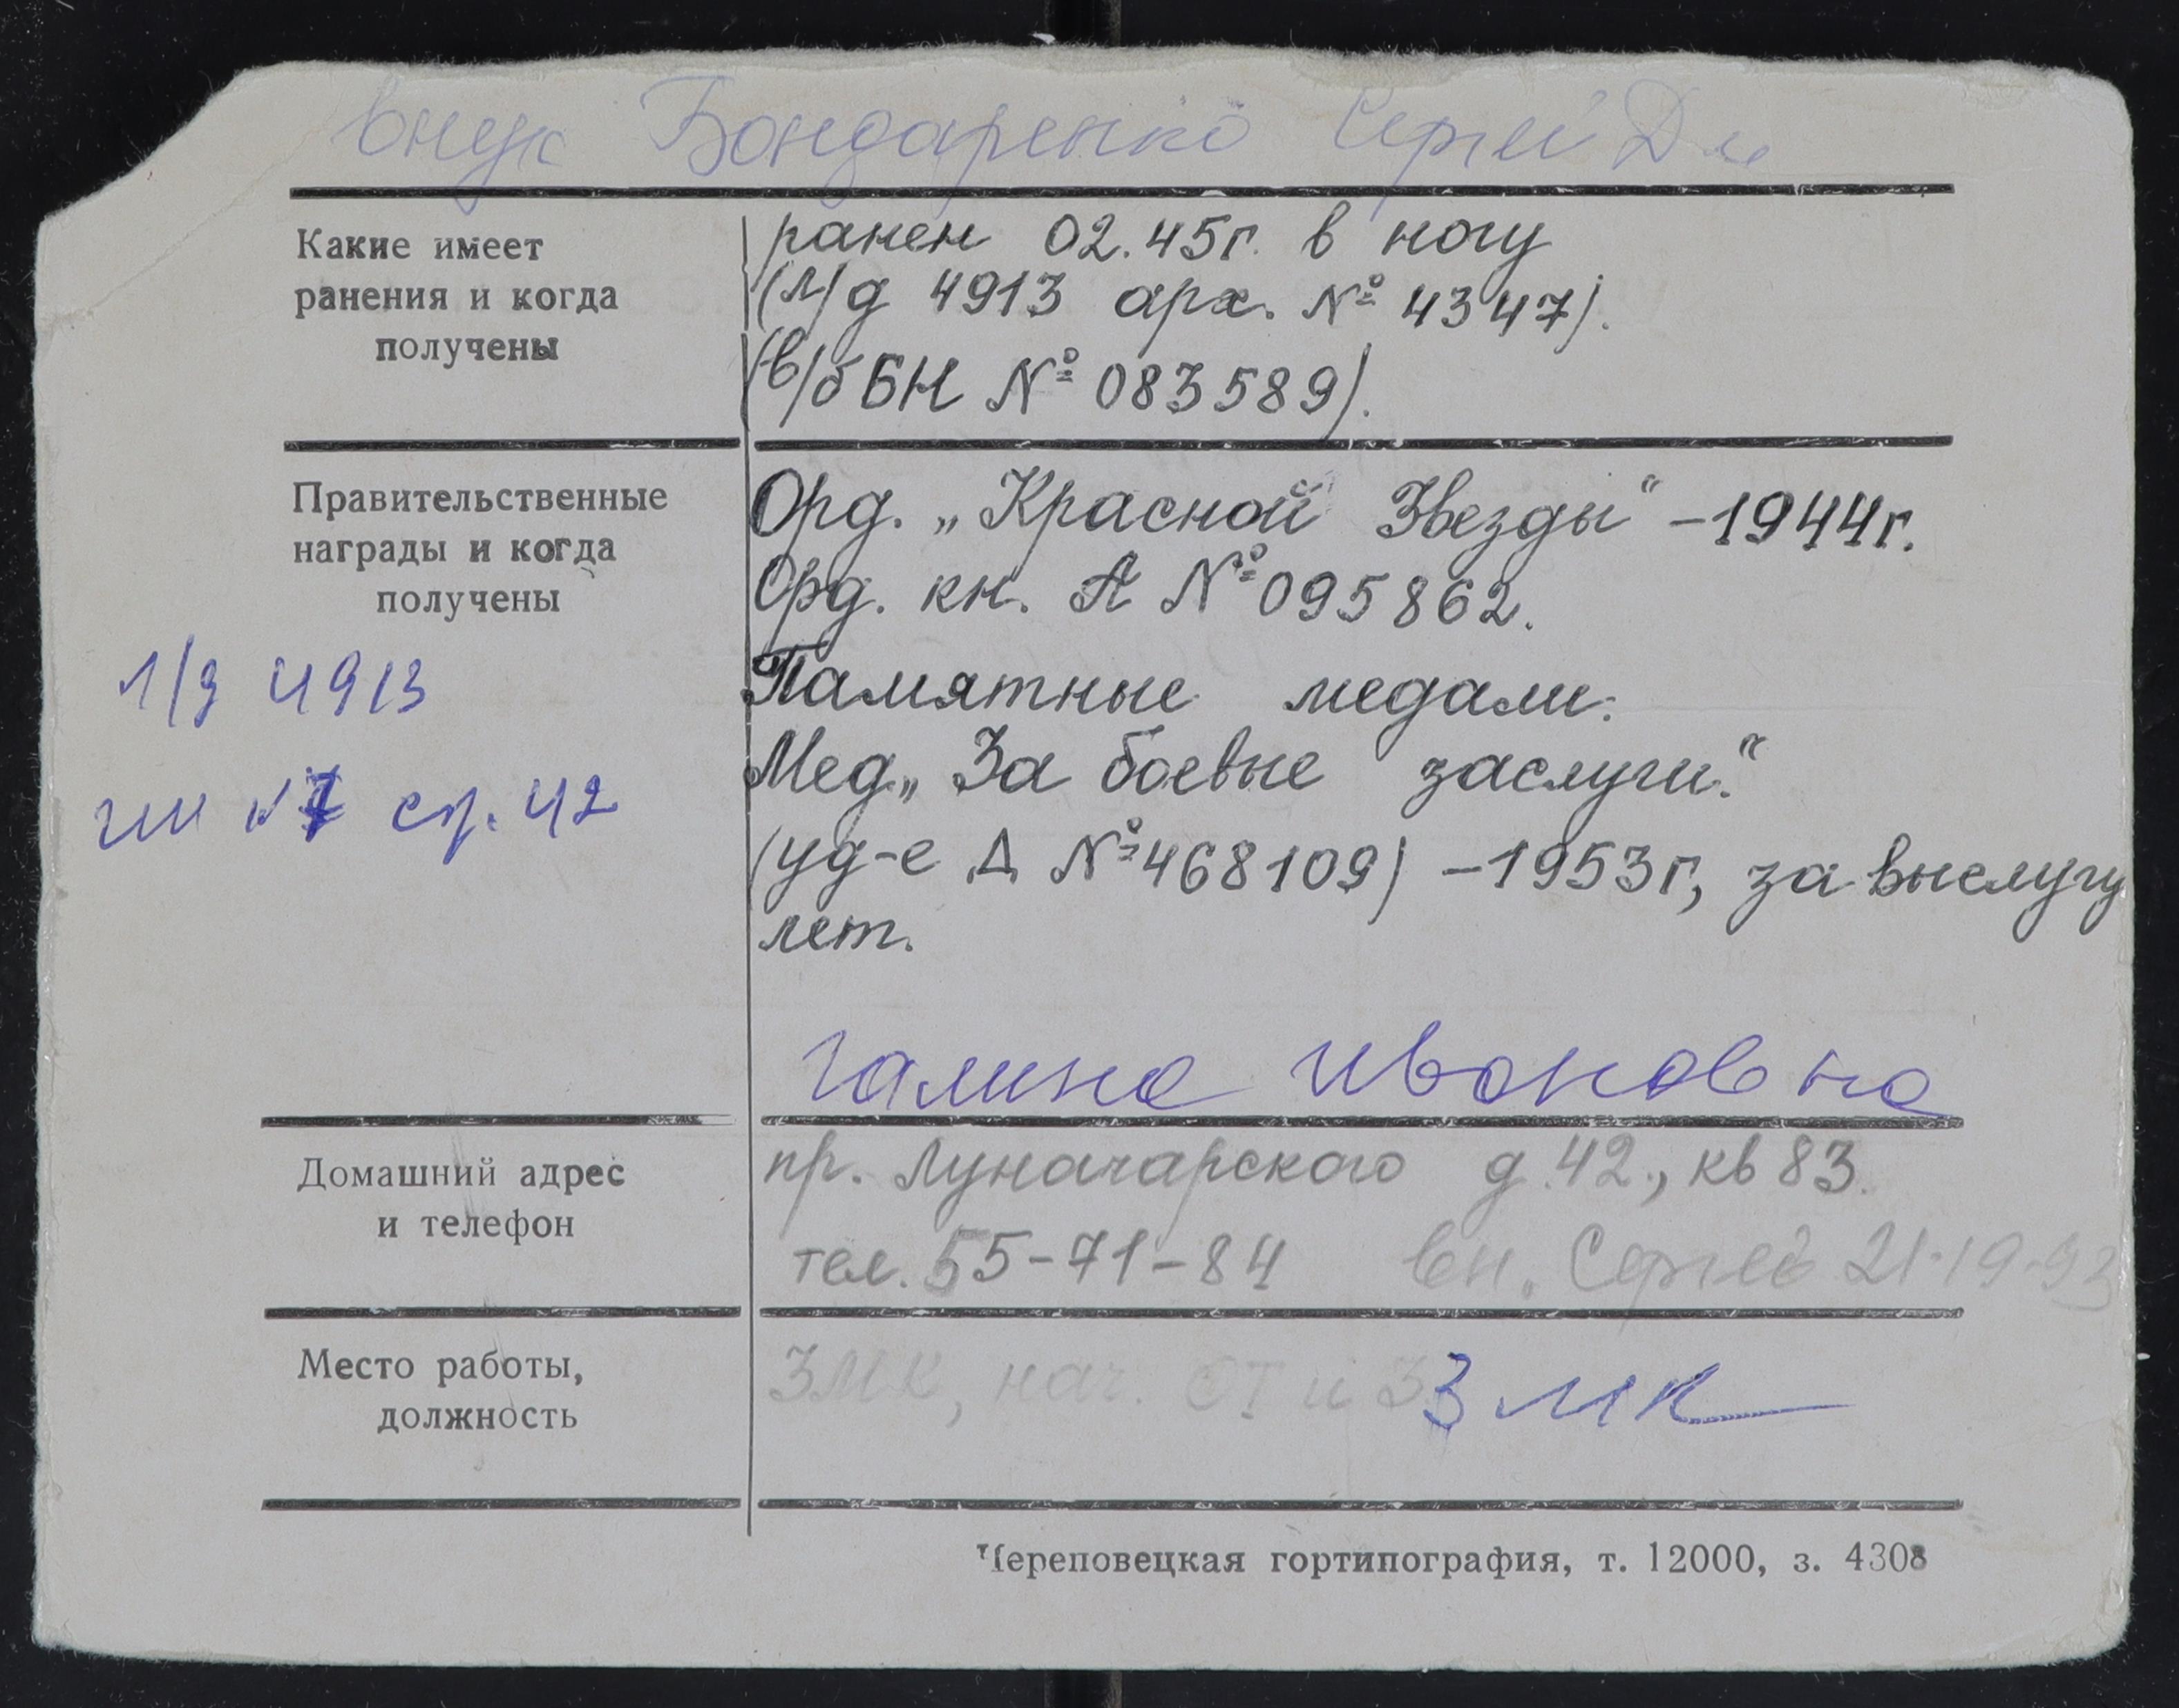 внук Бондаренко Сергей Дм
Какие имеет
ранения и когда
получены
ранен 02.45г. в ногу
(л/д 4913 арх. № 4347).
(в/б БН № 083589).
Правительственные
награды и когда
получены
Орд. „Красной Звезды“ – 1944г.
Орд. кн. А № 095862.
Памятные медали.
Мед. „За боевые заслуги.“
(уд-е Д № 468109) – 1953г, за выслугу
лет.
л/д 4913
7 ср. 42
Галина Ивановна
Домашний адрес
и телефон
пр. Луначарского д. 42., кв 83.
тел. 55-71-84 вн. Сергей 21-19-93
Место работы,
должность
ЗМК, нач. ОТ и З ЗМК
Череповецкая гортипография, т. 12000, з. 4308